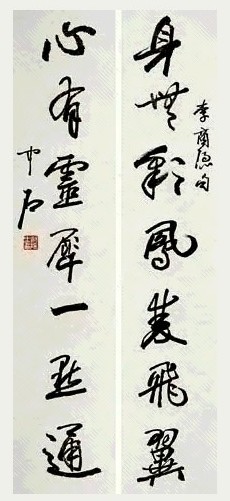 身無彩鳳雙飛翼
李商隱句
心有靈犀一點通
中石